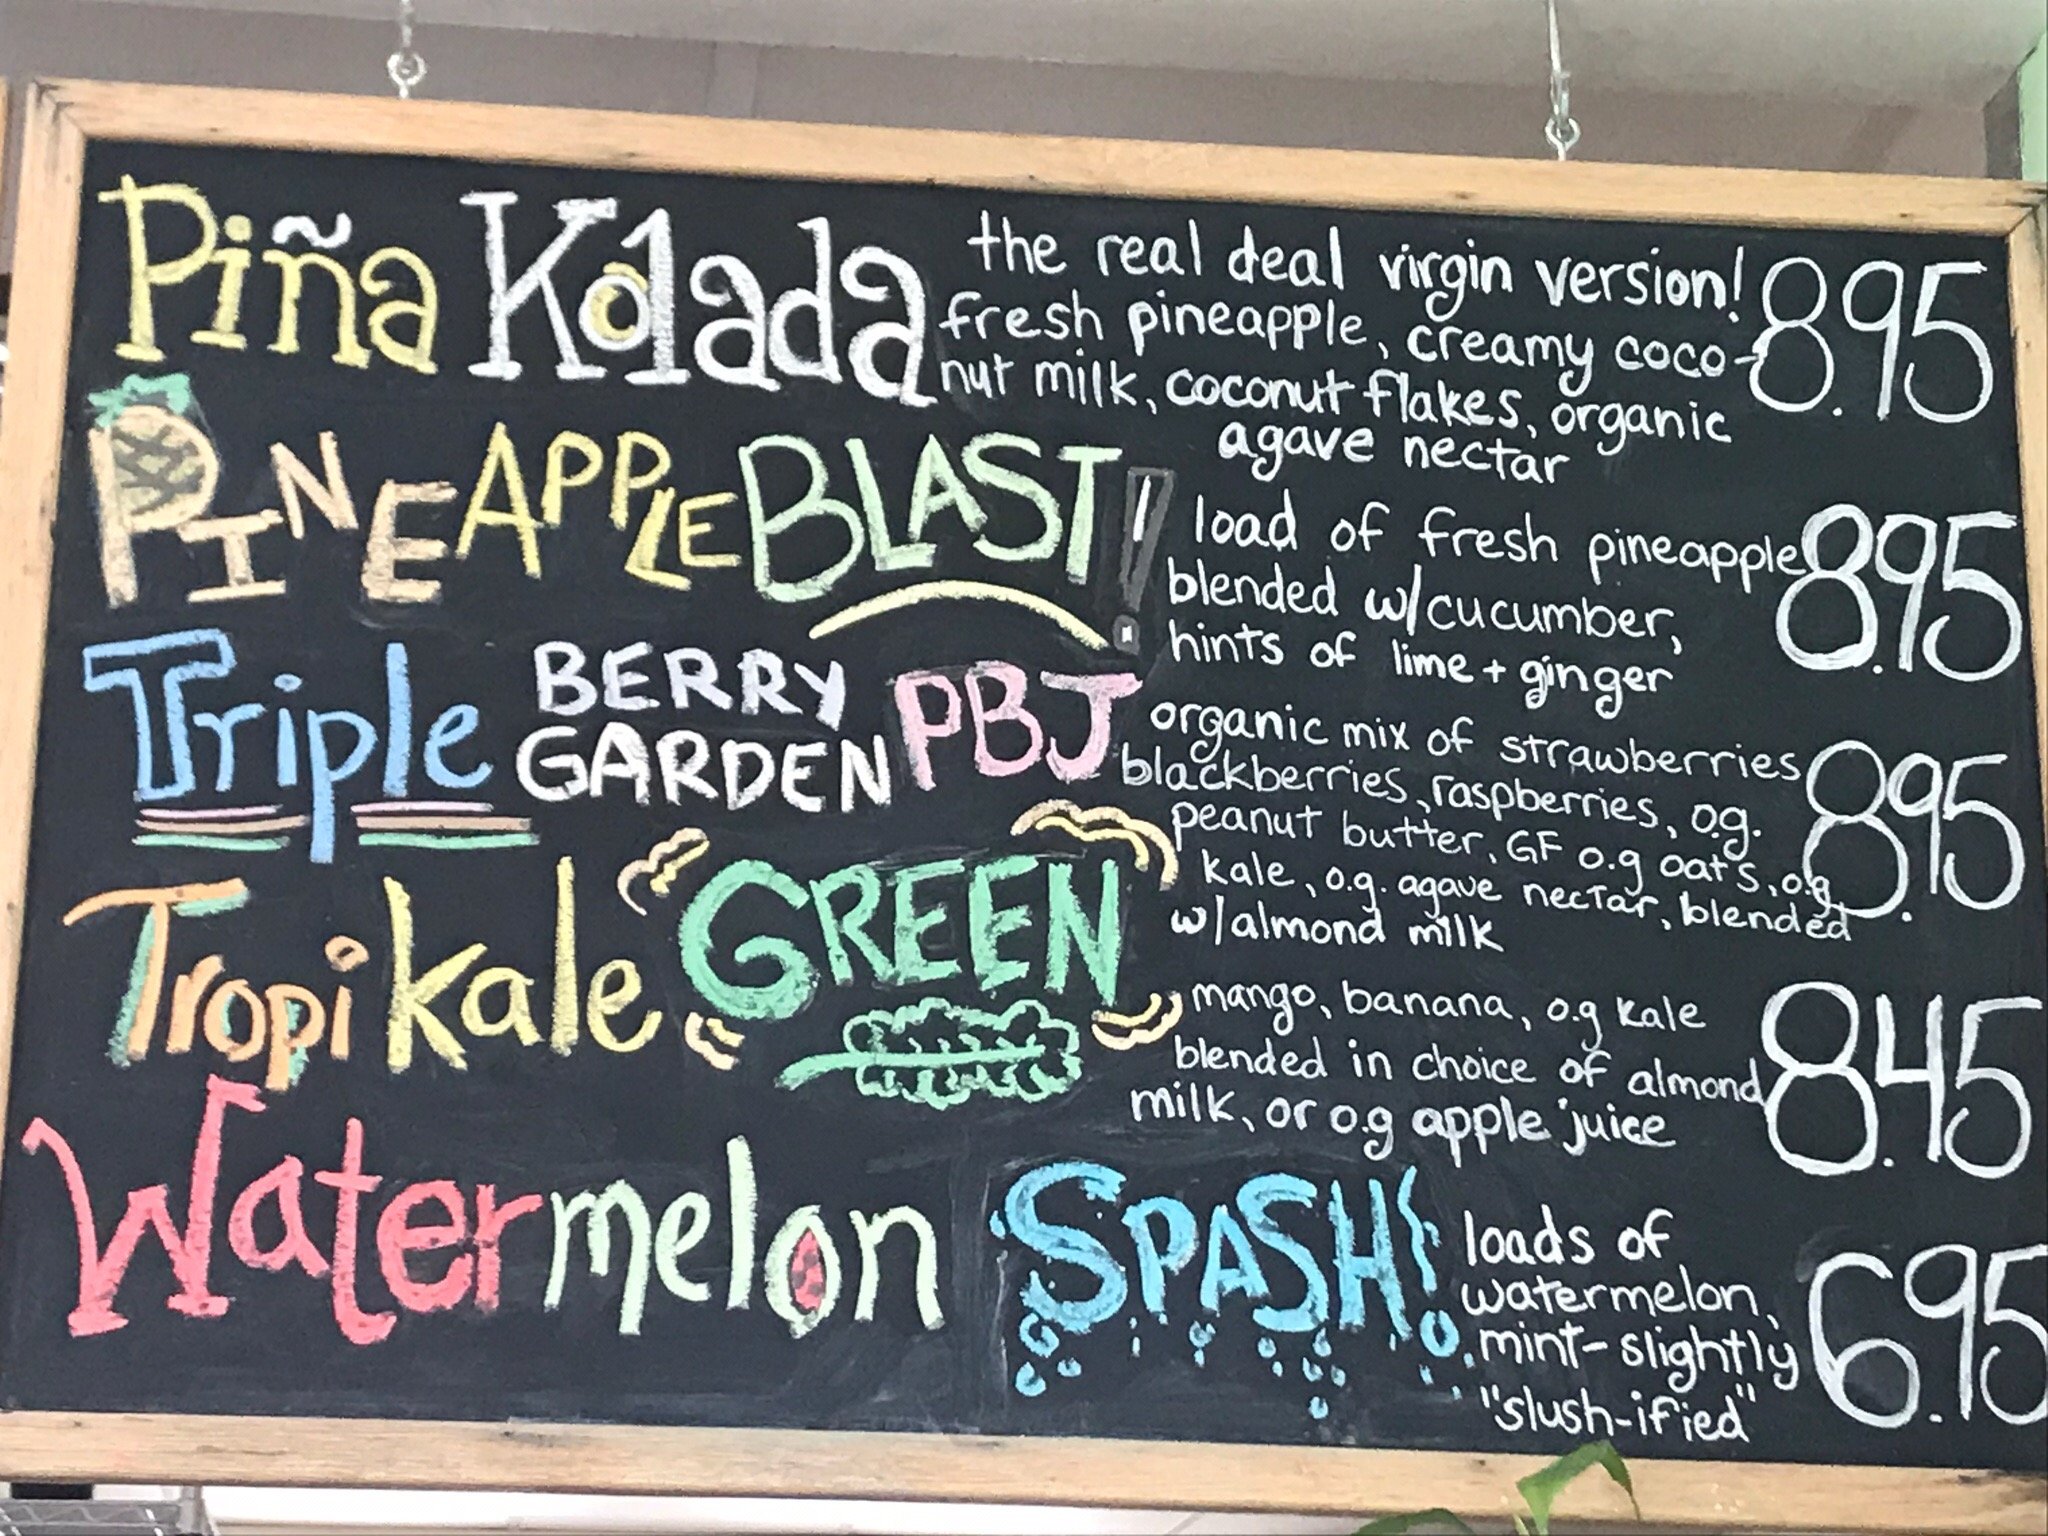 Piña Kolada
the real deal virgin version!
fresh pineapple, creamy coco-
nut milk, coconut flakes, organic
agave nectar
8.95
PINEAPPLE BLAST!
load of fresh pineapple
blended w/cucumber,
hints of lime + ginger
8.95
Triple BERRY GARDEN PBJ
organic mix of strawberries
blackberries, raspberries, o.g.
peanut butter, GF o.g oats, o.g
kale, o.g. agave nectar, blended
w/almond milk
8.95
Tropikale GREEN
mango, banana, o.g kale
blended in choice of almond
milk, or o.g apple juice
8.45
Watermelon SPASH!
loads of
watermelon,
mint-slightly
"slush-ified"
6.95